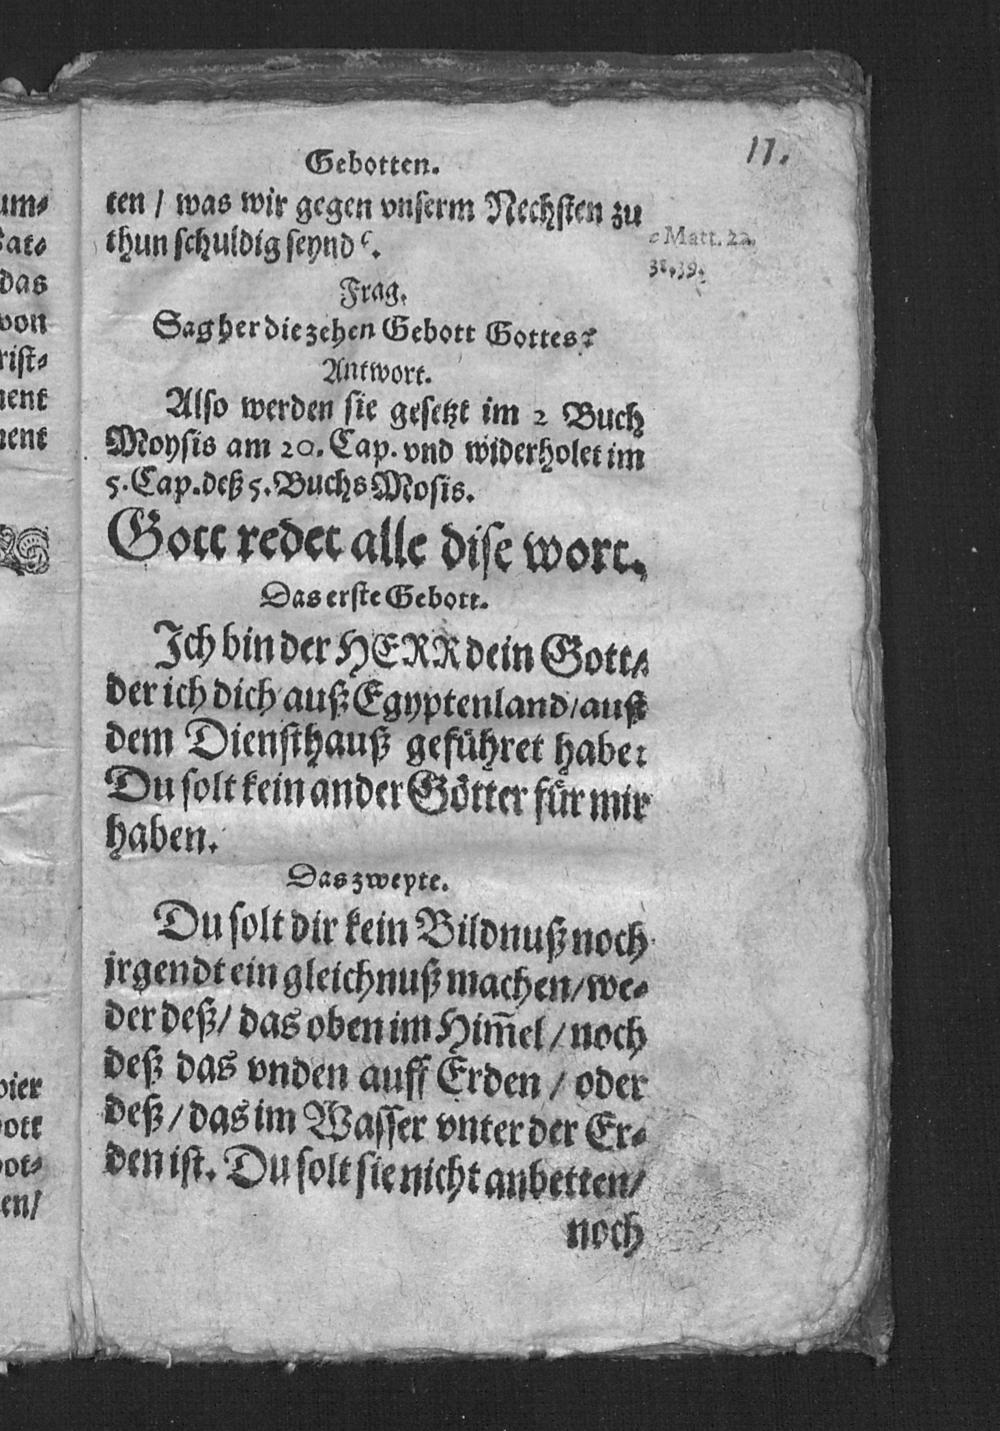 Gebotten.
11.
ten / was wir gegen vnserm Nechsten zu
thun schuldig seynd c.
c Matt. 22.
38.39.
Frag.
Sag her die zehen Gebott Gottes?
Antwort.
Also werden sie gesetzt im 2 Buch
Moysis am 20. Cap. vnd widerholet im
5. Cap. deß 5. Buchs Mosis.
Gott redet alle dise wort.
Das erste Gebott.
Ich bin der HERR dein Gott /
der ich dich auß Egyptenland / auß
dem Diensthauß geführet habe:
Du solt kein ander Götter für mir
haben.
Das zweyte.
Du solt dir kein Bildnuß noch
jrgendt ein gleichnuß machen / we-
der deß / das oben im Him̃el / noch
deß das vnden auff Erden / oder
deß / das im Wasser vnter der Er-
den ist. Du solt sie nicht anbetten /
noch
um-
das
von
rist-
ment
ment
vier
bott
bot-
en /